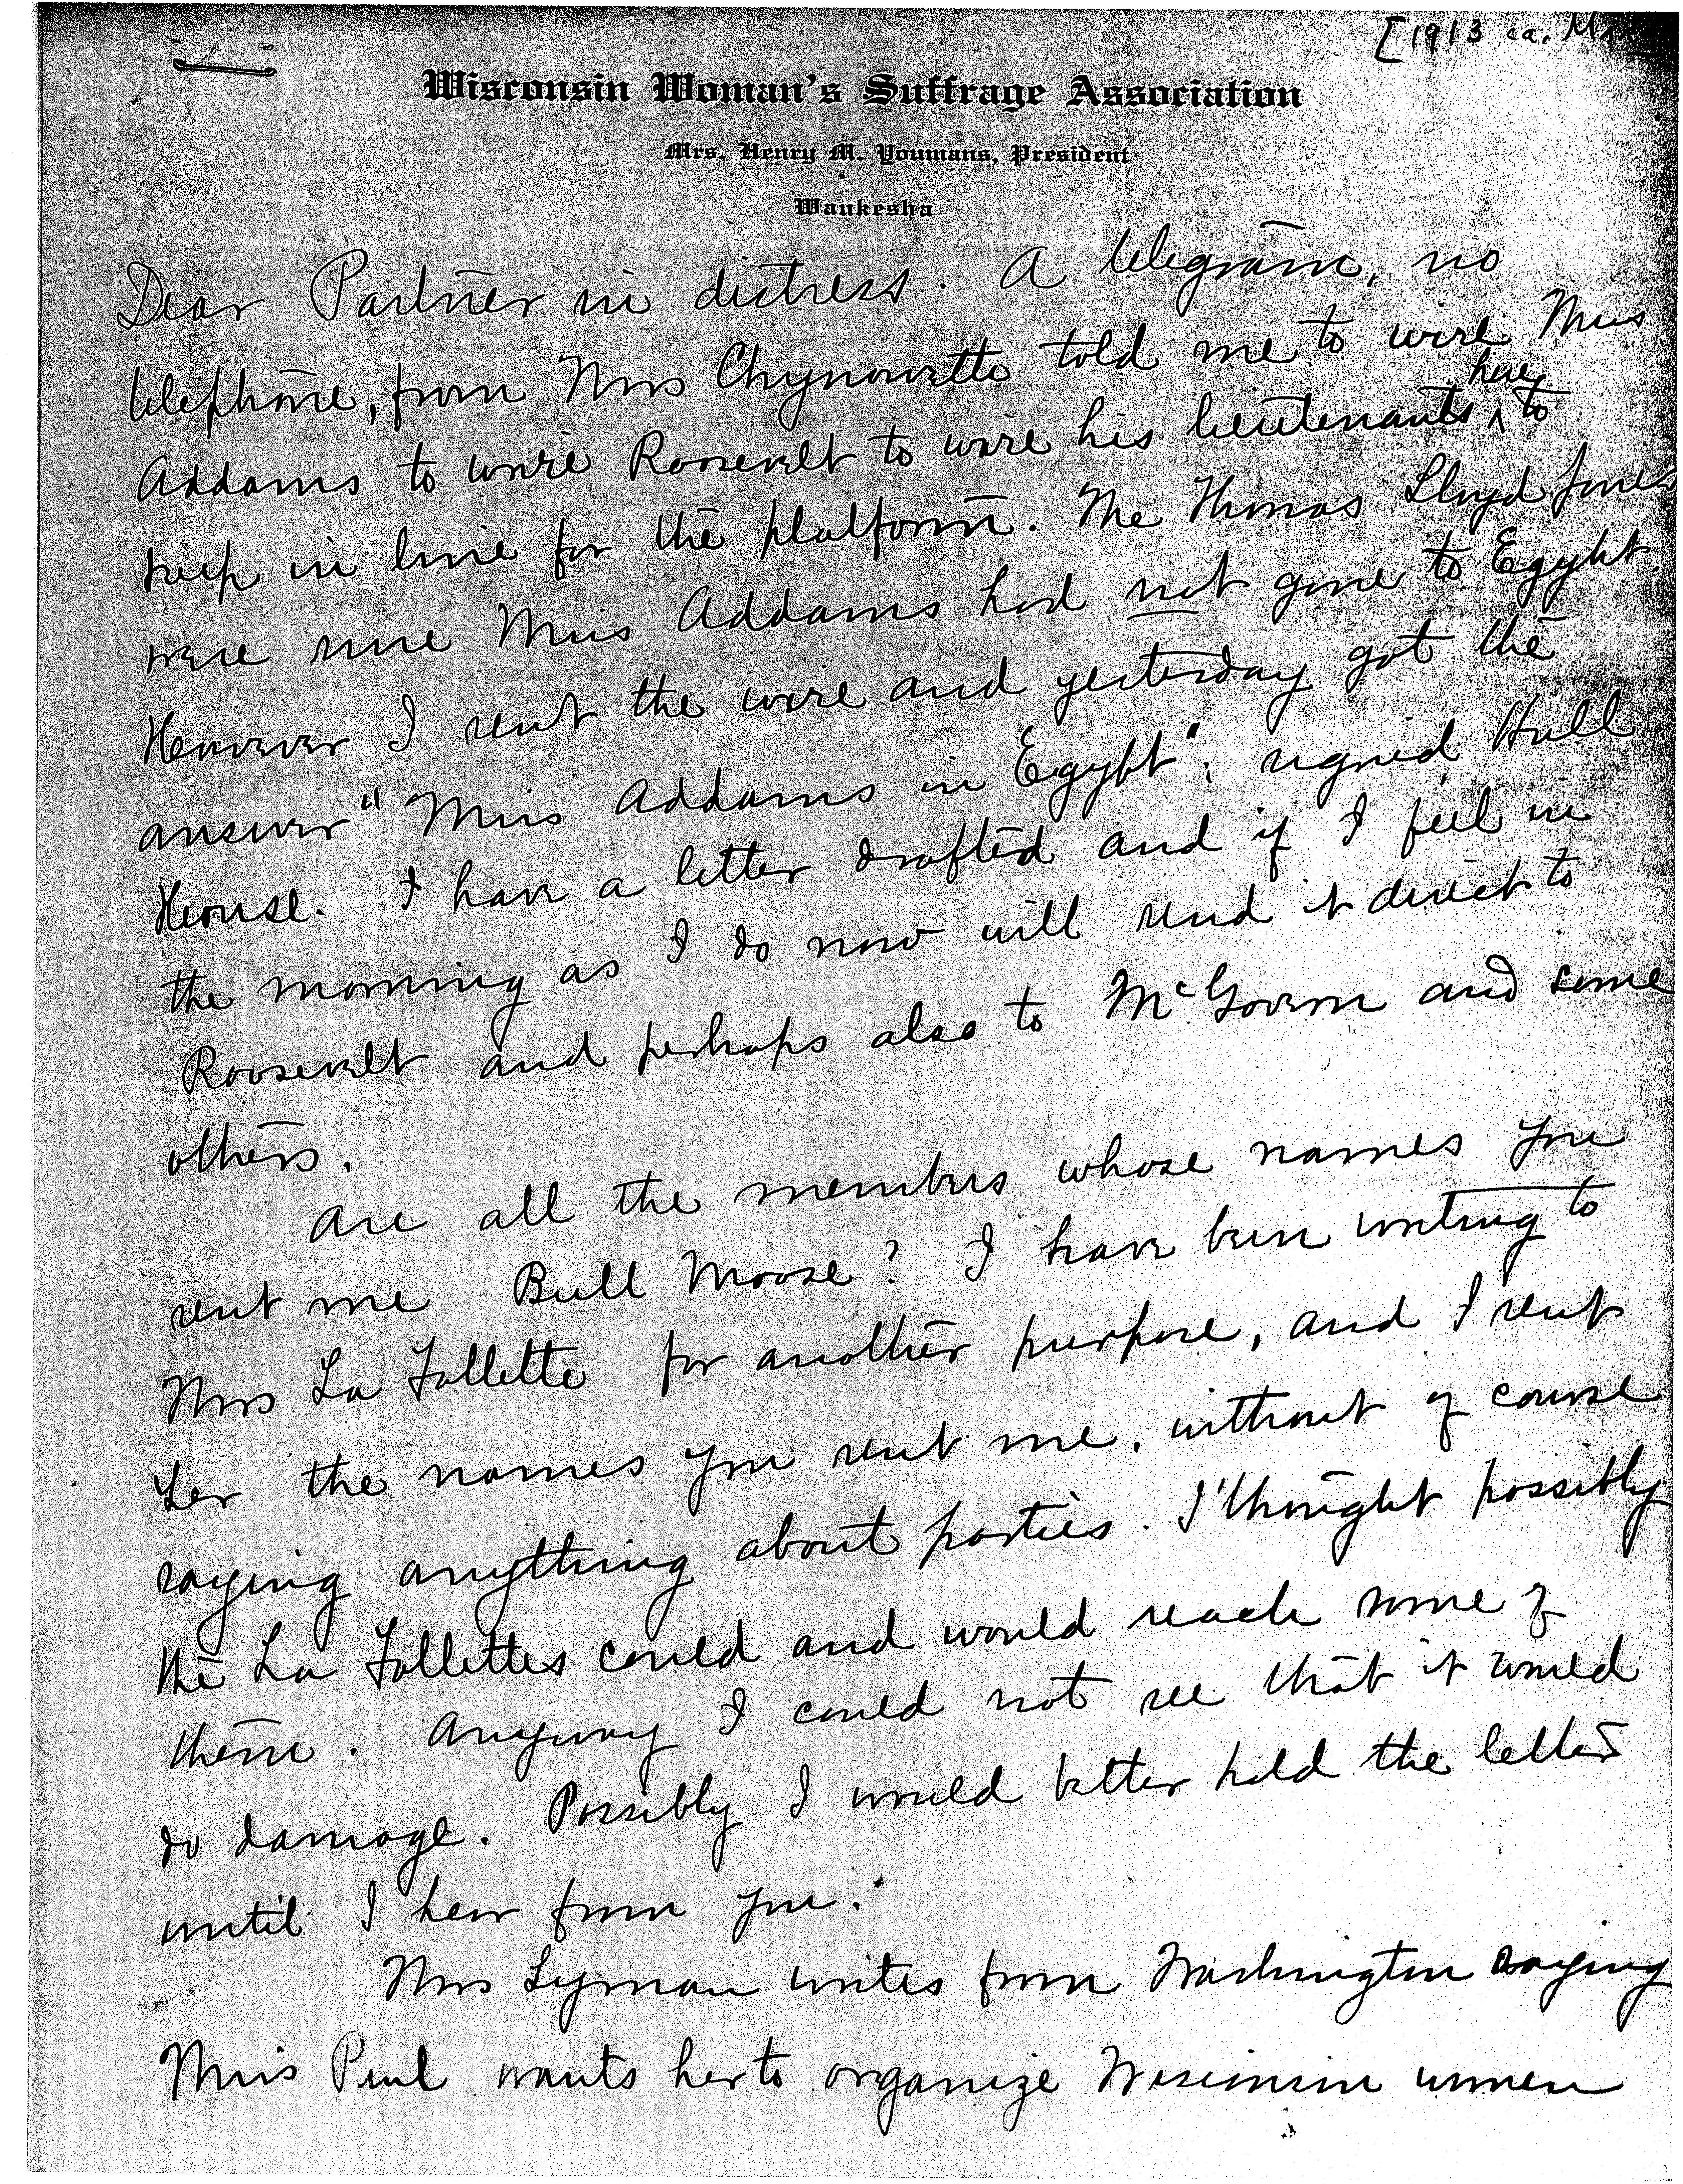 [1913 ca.
Wisconsin Woman's Suffrage Association
Mrs. Henry M. Youmans, President
Waukesha
Dear Partner in distress. A telegram, no
telephone, from Mrs Chynoweth told me to wire Miss
Addams to wire Roosevelt to wire his lieutenants ^here to
keep in line for the platform. The Thomas Lloyd Jones
were sure Miss Addams had not gone to Egypt.
However I sent the wire and yesterday got the
answer "Miss Addams in Egypt", signed, Hull
House. I have a letter drafted and if I feel in
the morning as I do now will send it direct to
Roosevelt and perhaps also to McGovern and some
others.
Are all the members whose names you
sent me Bull Moose? I have been writing to
Mrs La Follette for another purpose, and I sent
her the names you sent me, without of course
saying anything about parties. I thought possibly
the La Follettes could and would reach some of
them. Anyway I could not see that it would
do damage. Possibly I would better hold the letter
until I hear from you.
Mrs Lyman writes from Washington saying
Miss Paul wants her to organize Wisconsin women